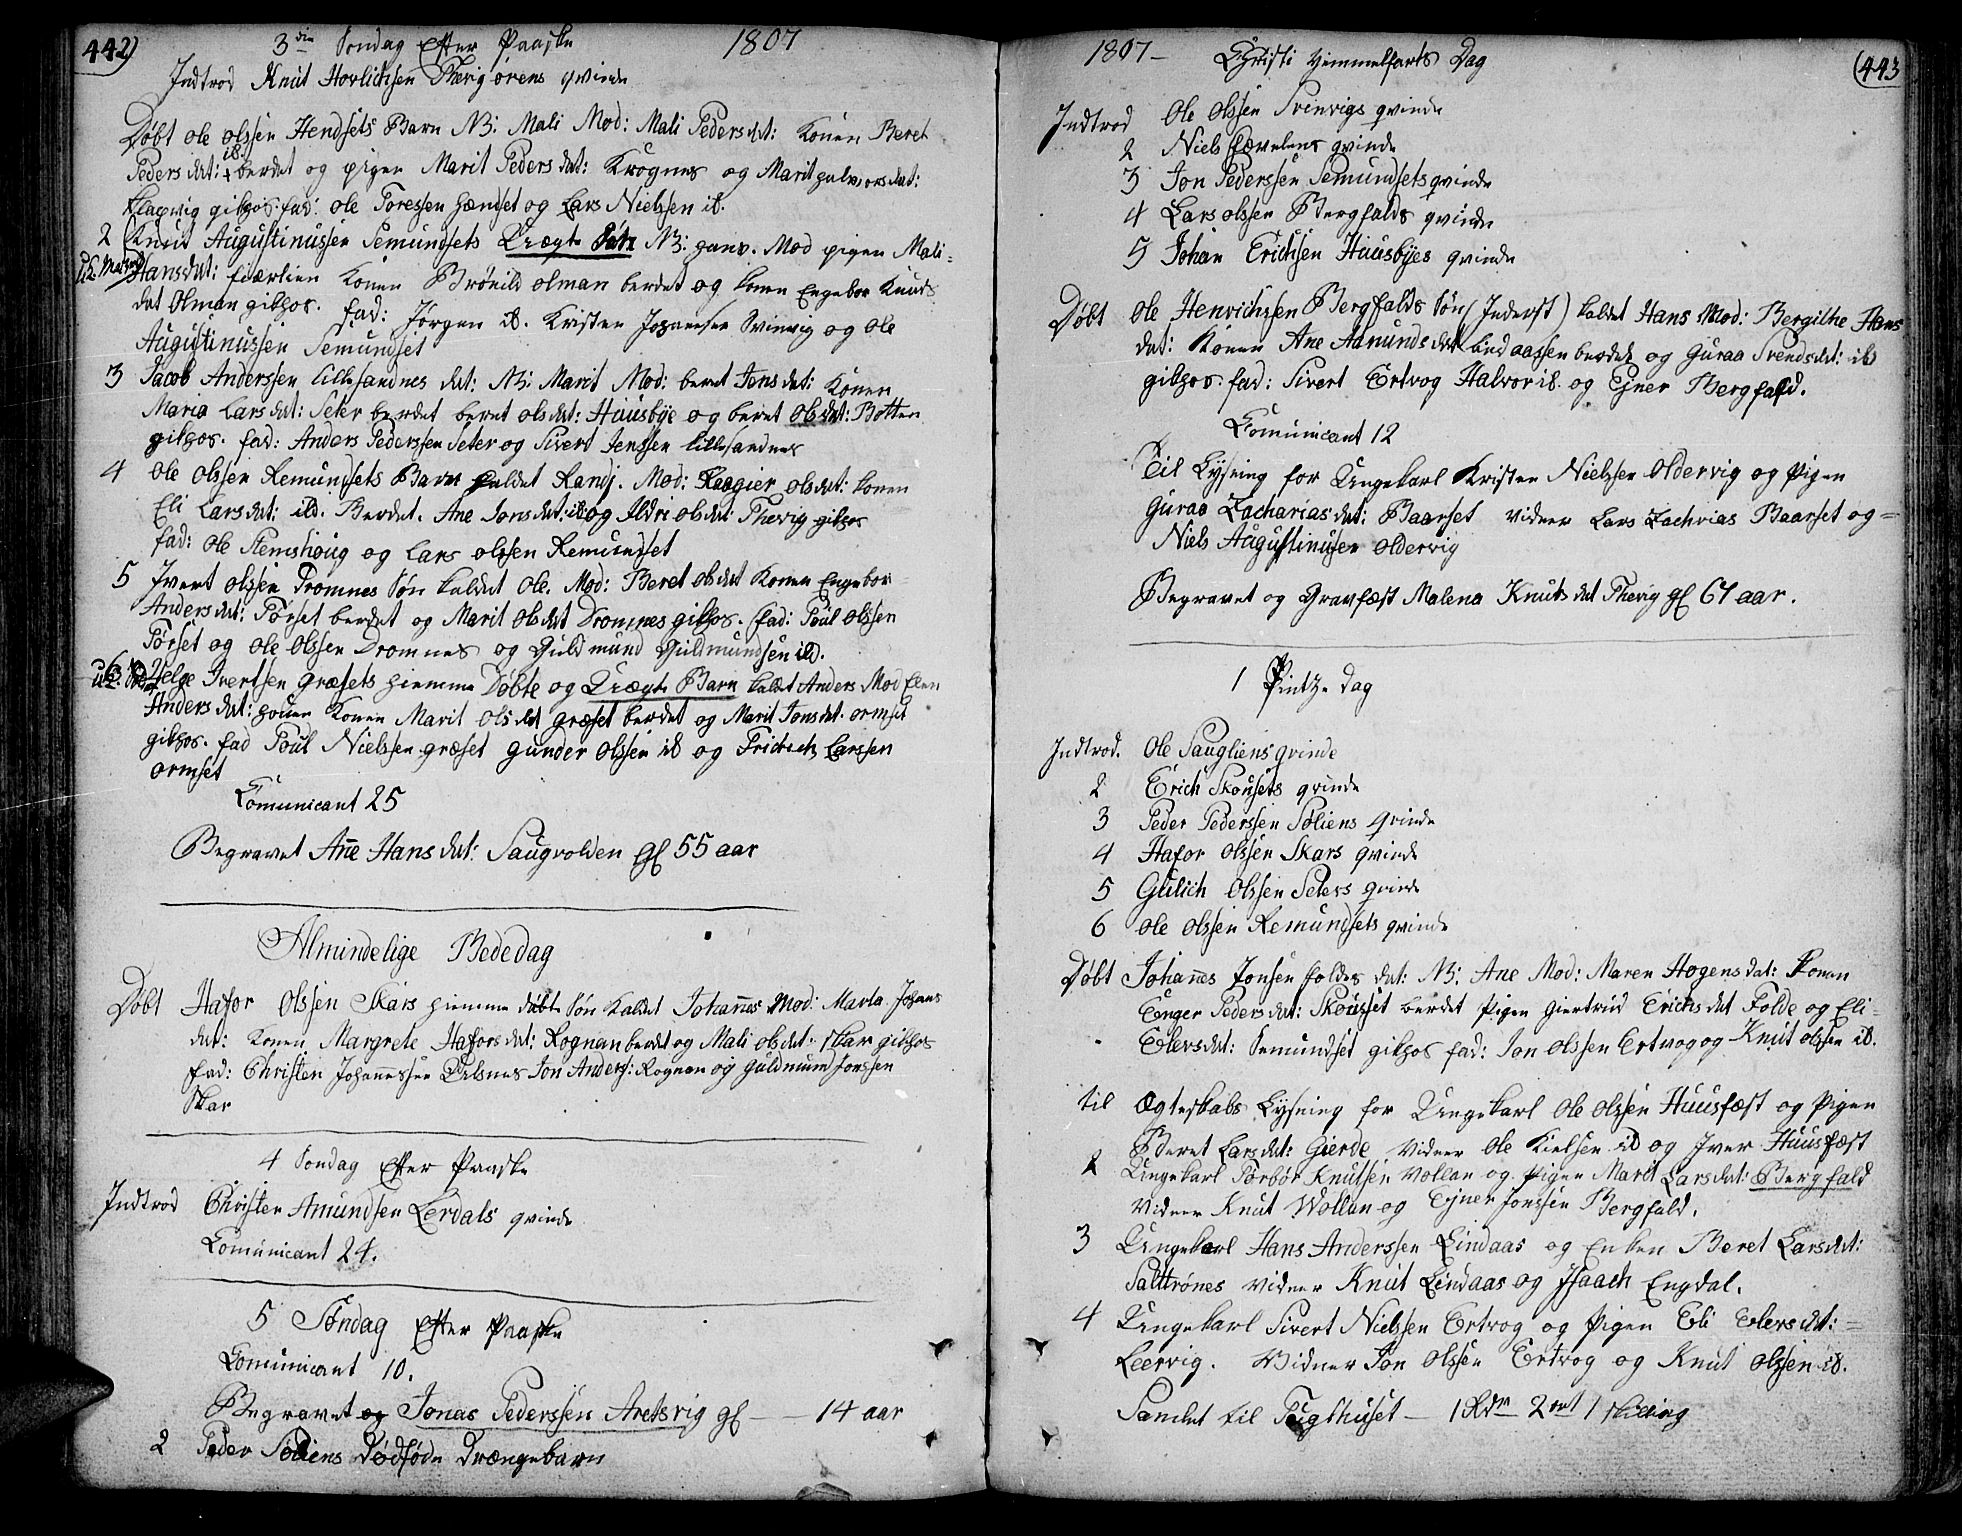 442)
3die Søndag Efter Paaske 1807
Indtrod Knut Hovlichsen Thevigørens qvinde
Døbt Ole Olssen Hendsets Barn N: Mali Mod: Mali Pedersdat: Konen Beret
Pedersdat: ib. berdet og pigen Marit Pedersdat: Krognes og Marit Halvorsdat:
Klagvig gilhos. fad: Ole Toressen Hændset og Lars Nielssen ib.
2 Knud Augustinussen Semundsets Uægte N: Hans. Mod pigen Mali-
Hansdat: fiærlien Konen Brønild Olman berdet og konen Engebor Knuds
dat Olman gilhos. fad: Jørgen ib. Kristen Johansen Svinvig og Ole
Augustinussen Semundset
3 Jacob Anderssen Lillesandnes dat: N: Marit Mod: beret Jonsdat: Konen
Maria Larsdat: Seter berdet beret olsdat: Huusbye og beret Olsdat: Botten
gilhos. fad: Anders Pederssen Seter og Sivert Jenssen Lillesandnes
4 Ole Olssen Remundsets Barn kaldet Randj. Mod: Raagier olsdat: konen
Eli Larsdat: ibd. Berdet. Ane Jonsdat: ib og Ildri olsdat Thevig gilhos
fad: Ole Stemshoug og Lars Olssen Remundset
5 Ivert Olssen Dromnes Søn kaldet Ole. Mod: Beret olsdat Konen Engebor
Andersdat: Torset berdet og Marit Olsdat Dromnes gilhos. fad: Poul Olssen
Torset og Ole Olssen Dromnes og Guldmund Guldmundsen ibd.
6 Helge Ivertsen Græsets hiemme Døbte og Uægte Barn kaldt Anders Mod Elen
Andersdat: Konen Marit Olsdat Græset berdet og Marit Jonsdat. ormset
gilhos. fad Poul Nielssen græset Gunder Olssen ib og Fridrich Larssen
ormset
Comunicant 25
Begravet Anne Hansdat: Saugvolden gl 55 aar
Almindelige Bededag
Døbt Hafor Olssen Skars hiemme døbte Søn kaldet Johannes Mod: Marta Johans
dat: Konen Margrete Haforsdat: Rognan berdet og Mali olsdat: Skar gilhos
fad: Christen Johannessen Ulsnes Jon Anders: Rognan og Guldmund Jonssen
Skar
4 Søndag Efter Paaske
Indtrod Christen Amundsen Lerdals qvinde
Comunicant 24.
5 Søndag Efter Paaske
Comunicant 10.
Begravet og Jonas Pederssen Aretsvig gl — 14 aar
2 Peder Søliens Dødføde Drængebarn
1807 – Christi Himmelfarts Dag (443
Indtrod Ole Olssen Svenvigs qvinde
2 Niels qvinde
3 Jon Pederssen Semundsets qvinde
4 Lars olssen Bergfalds qvinde
5 Johan Erichsen Huusbyes qvinde
Døbt Ole Henrichssen Bergfalds Søn (Inderst) kaldet Hans Mod: Bergithe Hans
dat: Konen Ane Amundsdat Lindaasen berdet og Guraa Svendsdat: ib
gilhos. fad: Sivert Ertvog Halvor ib. og Ejner Bergfald.
Comunicant 12
Til Lysning for Ungekarl Kristen Nielssen Oldervig og Pigen
Guraa Zachariasdat: Baarset vidner Lars Zachrias Baarset og
Niels Augustinusen Oldervig
Begravet og Gravfæst Malena Knutsdat Thevig gl 67 aar.
1 Pintze Dag
Indtrod. Ole Saugliens qvinde
2 Erich Skousets qvinde
3 Peder Pederssen Søliens qvinde
4 Hafor Olssen Skars qvinde
5 Gulich Olssen Seters qvinde
6 Ole Olssen Remundsets qvinde
Døbt Johannes Jonsen foldes dat: N: Ane Mod: Maren Hogensdat: Konen
Enger Pedersdat: Skouset berdet Pigen Giertrud Erichsdat Folde og Eli-
Elersdat: Semundset gilhos fad: Jon Olssen Ertvog og Knut Olssen ib.
til Ægteskabs Lysning for Ungekarl Ole Olssen Huusfæst og Pigen
Beret Larsdat: Gierde vidner Ole Kielsen ib og Iver Huusfæst
2 Ungekarl Torbør Knutsen Vollan og Pigen Marit Larsdat: Bergfald
vidner Knut Wollan og Ejner Jonssen Bergfald.
3 Ungekarl Hans Anderssen Lindaas og Enken Beret Larsdat:
Salttrønes vidner Knut Lindaas og Isaach Engdal.
4 Ungekarl Sivert Nielssen Ertvog og Pigen Eli Elersdat:
Leervig. Vidner Jon Olssen Ertvog og Knut Olssen ib.
Samlet til Tugthuset – 1 Rdr 2 ort 1 skilling